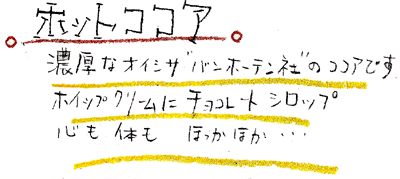 ホットココア
濃厚なオイシサ゛バンホーテン社"のココアです
ホイップクリームに チョコレートシロップ
心も 体も ほっかほか・・・